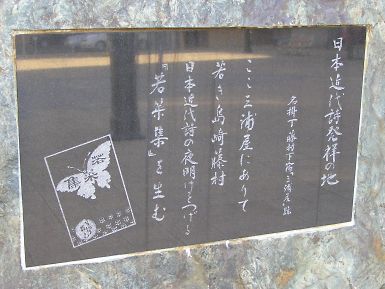 日本近代詩発祥の地
名掛丁 藤村下宿三浦屋跡
ここ三浦屋にありて
若き島崎藤村
日本近代詩の夜明けをつげる
『若菜集』を生む
若菜集